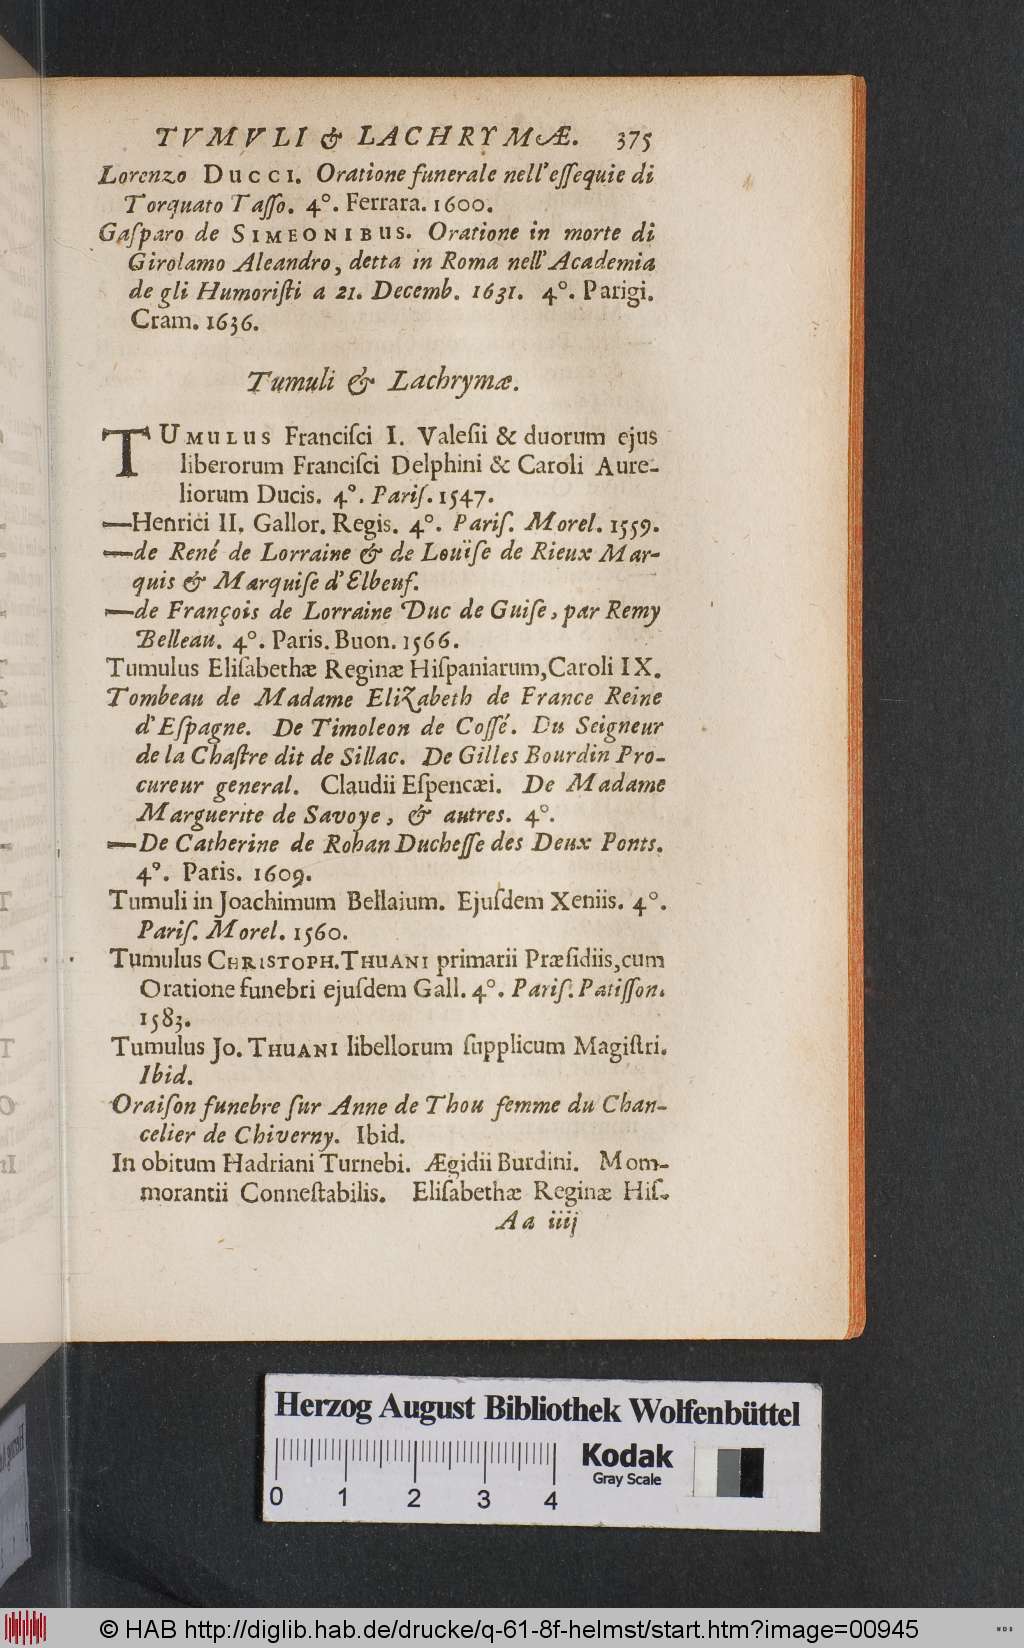 TVMVLI & LACHRYMÆ. 375
Lorenzo Ducci. Oratione funerale nell'eſſequie di
Torquato Taſſo. 4°. Ferrara. 1600.
Gaſparo de SIMEONIBUS. Oratione in morte di
Girolamo Aleandro, detta in Roma nell'Academia
de gli Humoriſti a 21. Decemb. 1631. 4°. Parigi.
Cram. 1636.
Tumuli & Lachrymæ.
TUMULUS Franciſci I. Valeſii & duorum ejus
liberorum Franciſci Delphini & Caroli Aure-
liorum Ducis. 4°. Pariſ. 1547.
—Henrici II. Gallor. Regis. 4°. Pariſ. Morel. 1559.
—de René de Lorraine & de Louïſe de Rieux Mar-
quis & Marquiſe d'Elbeuf.
—de François de Lorraine Duc de Guiſe, par Remy
Belleau. 4°. Paris. Buon. 1566.
Tumulus Eliſabethæ Reginæ Hiſpaniarum, Caroli IX.
Tombeau de Madame Elizabeth de France Reine
d'Eſpagne. De Timoleon de Coſſé. Du Seigneur
de la Chaſtre dit de Sillac. De Gilles Bourdin Pro-
cureur general. Claudii Eſpencæi. De Madame
Marguerite de Savoye, & autres. 4°.
—De Catherine de Rohan Ducheſſe des Deux Ponts.
4°. Paris. 1609.
Tumuli in Joachimum Bellaium. Ejuſdem Xeniis. 4°.
Pariſ. Morel. 1560.
Tumulus CHRISTOPH. THUANI primarii Præſidiis, cum
Oratione funebri ejuſdem Gall. 4°. Pariſ. Patiſſon.
1583.
Tumulus Jo. THUANI libellorum ſupplicum Magiſtri.
Ibid.
Oraiſon funebre ſur Anne de Thou femme du Chan-
celier de Chiverny. Ibid.
In obitum Hadriani Turnebi. Ægidii Burdini. Mom-
morantii Conneſtabilis. Eliſabethæ Reginæ Hiſ-
Aa iiij
Herzog August Bibliothek Wolfenbüttel
Kodak
Gray Scale
0 1 2 3 4
© HAB http://diglib.hab.de/drucke/q-61-8f-helmst/start.htm?image=00945